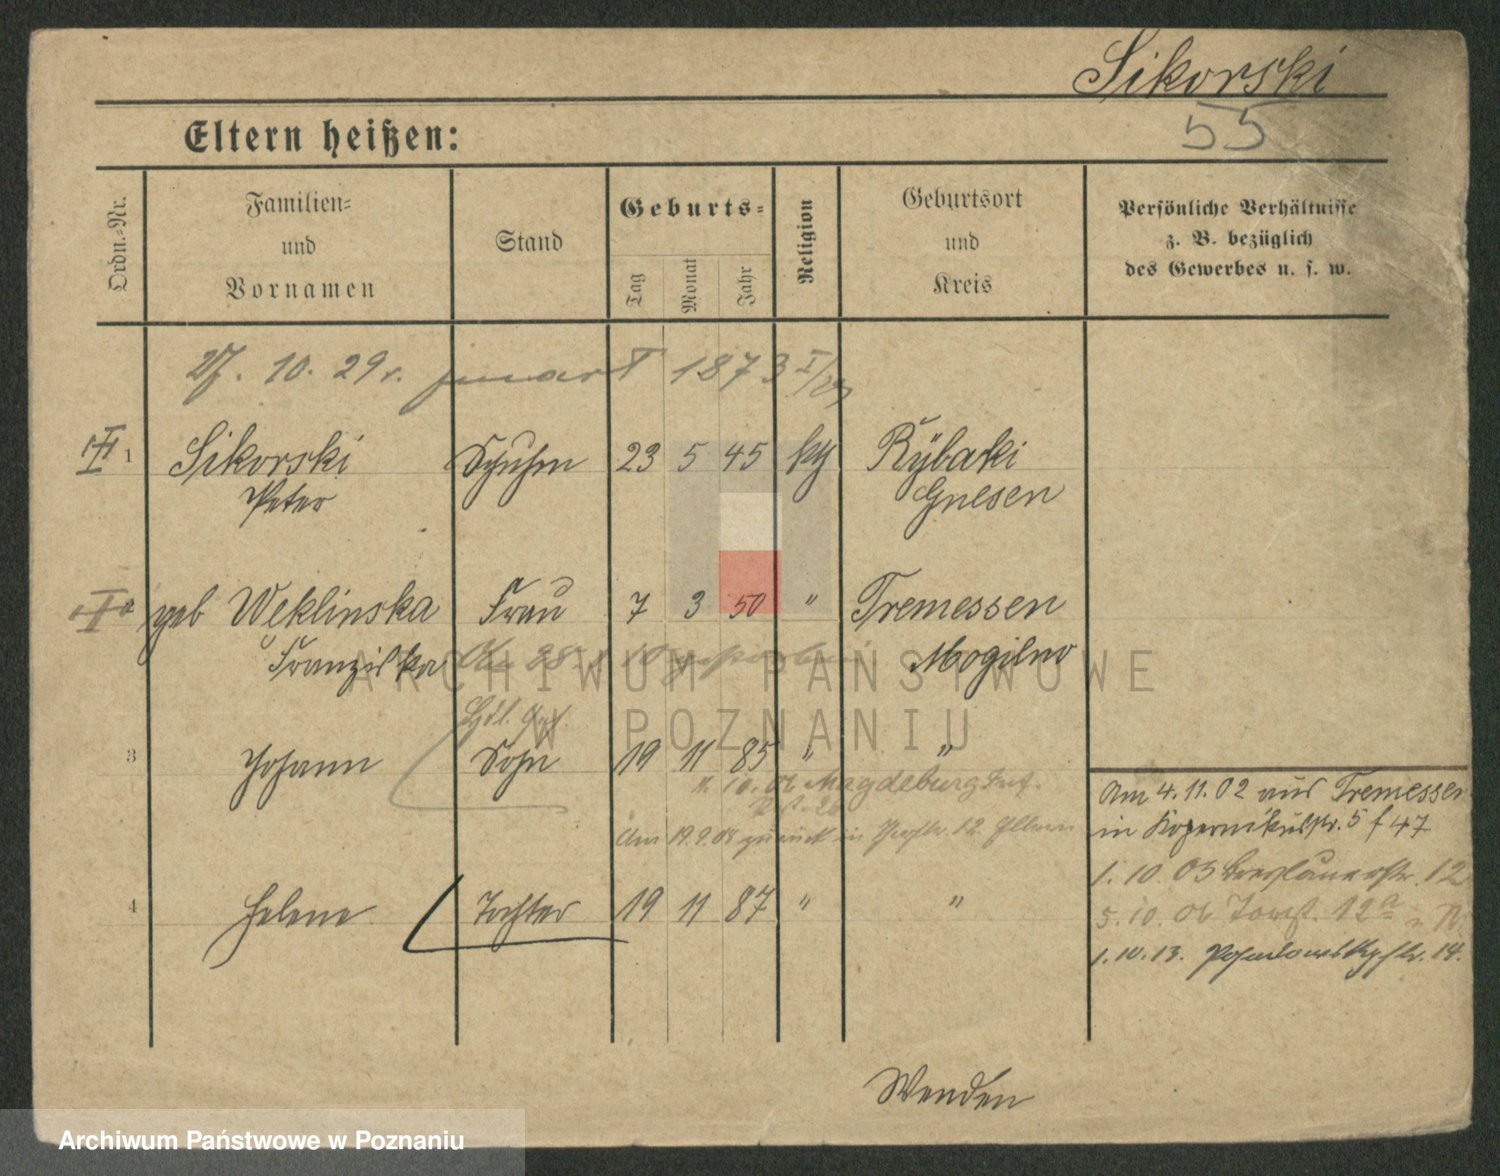 Sikorski
55
Eltern heißen:
Ordn.-Nr.
Familien-
und
Vornamen
Stand
Geburts-
Tag
Monat
Jahr
Religion
Geburtsort
und
Kreis
Persönliche Verhältnisse
z. B. bezüglich
des Gewerbes u. s. w.
27. 10. 29 r. 1873
1 Sikorski Schuhm 23 5 45 kth Rybaki
Peter Gnesen
geb Weklinska Frau 7 3 50 " Tremessen
Franziska Mogilno
3 Johann Sohn 19 11 85 " "
10. 06 Magdeburg
Am 19.9.08 zurück in 12
4 Helene Tochter 19 11 87 " "
Am 4.11.02 aus Tremessen
in Kopernikusstr. 5 f 47
1. 10. 05 Breslauerstr. 12
5. 10. 06 12a
1. 10. 13. 14.
Wenden
ARCHIWUM PAŃSTWOWE
W POZNANIU
Archiwum Państwowe w Poznaniu